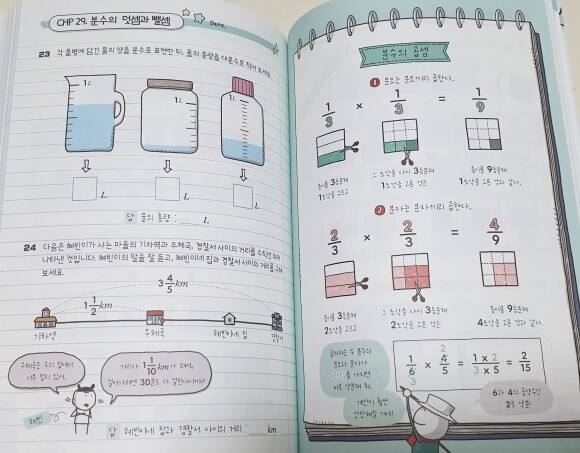 CHP 29. 분수의 덧셈과 뺄셈
Date.
23 각 물병에 담긴 물의 양을 분수로 표현한 뒤, 물의 총량을 대분수로 적어 보세요.
1L
1L
1L
L
L
L
답 물의 총량 : L
24 다음은 혜빈이가 사는 마을의 기차역과 우체국, 경찰서 사이의 거리를
나타낸 것입니다. 혜빈이의 말을 잘 듣고, 혜빈이네 집과 경찰서 사이의 거리를 구해
보세요.
3 4/5 km
1 1/2 km
기차역
우체국
혜빈이네 집
경찰서
우체국은 우리 집에서
너무 멀리 있어.
거리가 1 1/10 km가 돼서,
걸어가려면 30분도 더 걸린다니까?
혜빈
답 혜빈이네 집과 경찰서 사이의 거리 : km
분수의 곱셈
1 분모는 분모끼리 곱한다.
1/3 × 1/3 = 1/9
종이를 3등분해
1조각을 고르고
그 조각을 다시 3등분해
1조각을 고른 것은
종이를 9등분해
1조각을 고른 것과 같다.
2 분자는 분자끼리 곱한다.
2/3 × 2/3 = 4/9
종이를 3등분해
2조각을 고르고
그 조각을 다시 3등분해
2조각을 고른 것은
종이를 9등분해
4조각을 고른 것과 같다.
곱하려는 두 분수의
분모와 분자가
가지면
미리 약분해 줘.
계산이 훨씬
간단해질 거야!
1/6 3 × 2 4/5 = 1 x 2/3 x 5 = 2/15
6과 4의 공약수인
2로 약분!